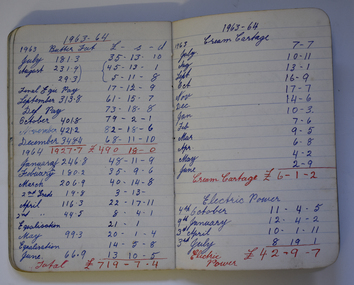 1963-64
1963 Butter Fat £ - s - d
July 181.3 35-13-10
August 231.9 45-13-1
29.3 5-11-8
Final Equ Pay 17-12-9
September 313.8 61-15-7
Def Pay 73-18-8
October 401.8 79-2-1
November 421.2 82-18-6
December 348.4 68-11-10
1964 1927.7 £490-18-0
January 246.8 48-11-9
February 180.2 35-9-6
March 206.9 40-14-8
2nd Grade 19.8 3-13-
April 116.3 22-17-11
49.5 8-4-1
Equalisation 21-1
May 99.3 20-1-4
Equalisation 14-5-8
June 66.9 13 10-5
Total £719-7-4
1963-64
1963 Cream Cartage
July 7-7
Aug 10-11
Sept 13-1
Oct 16-9
Nov 17-7
Dec 14-6
Jan 10-3
Feb 7-6
Mar 9-5
Apr 6-8
May 4-2
June 2-9
Cream Cartage £6-1-2
Electric Power
4th October 11-4-5
9th January 12-4-2
3rd April 10-1-11
3rd July 8 19 1
Electric Power £42-9-7